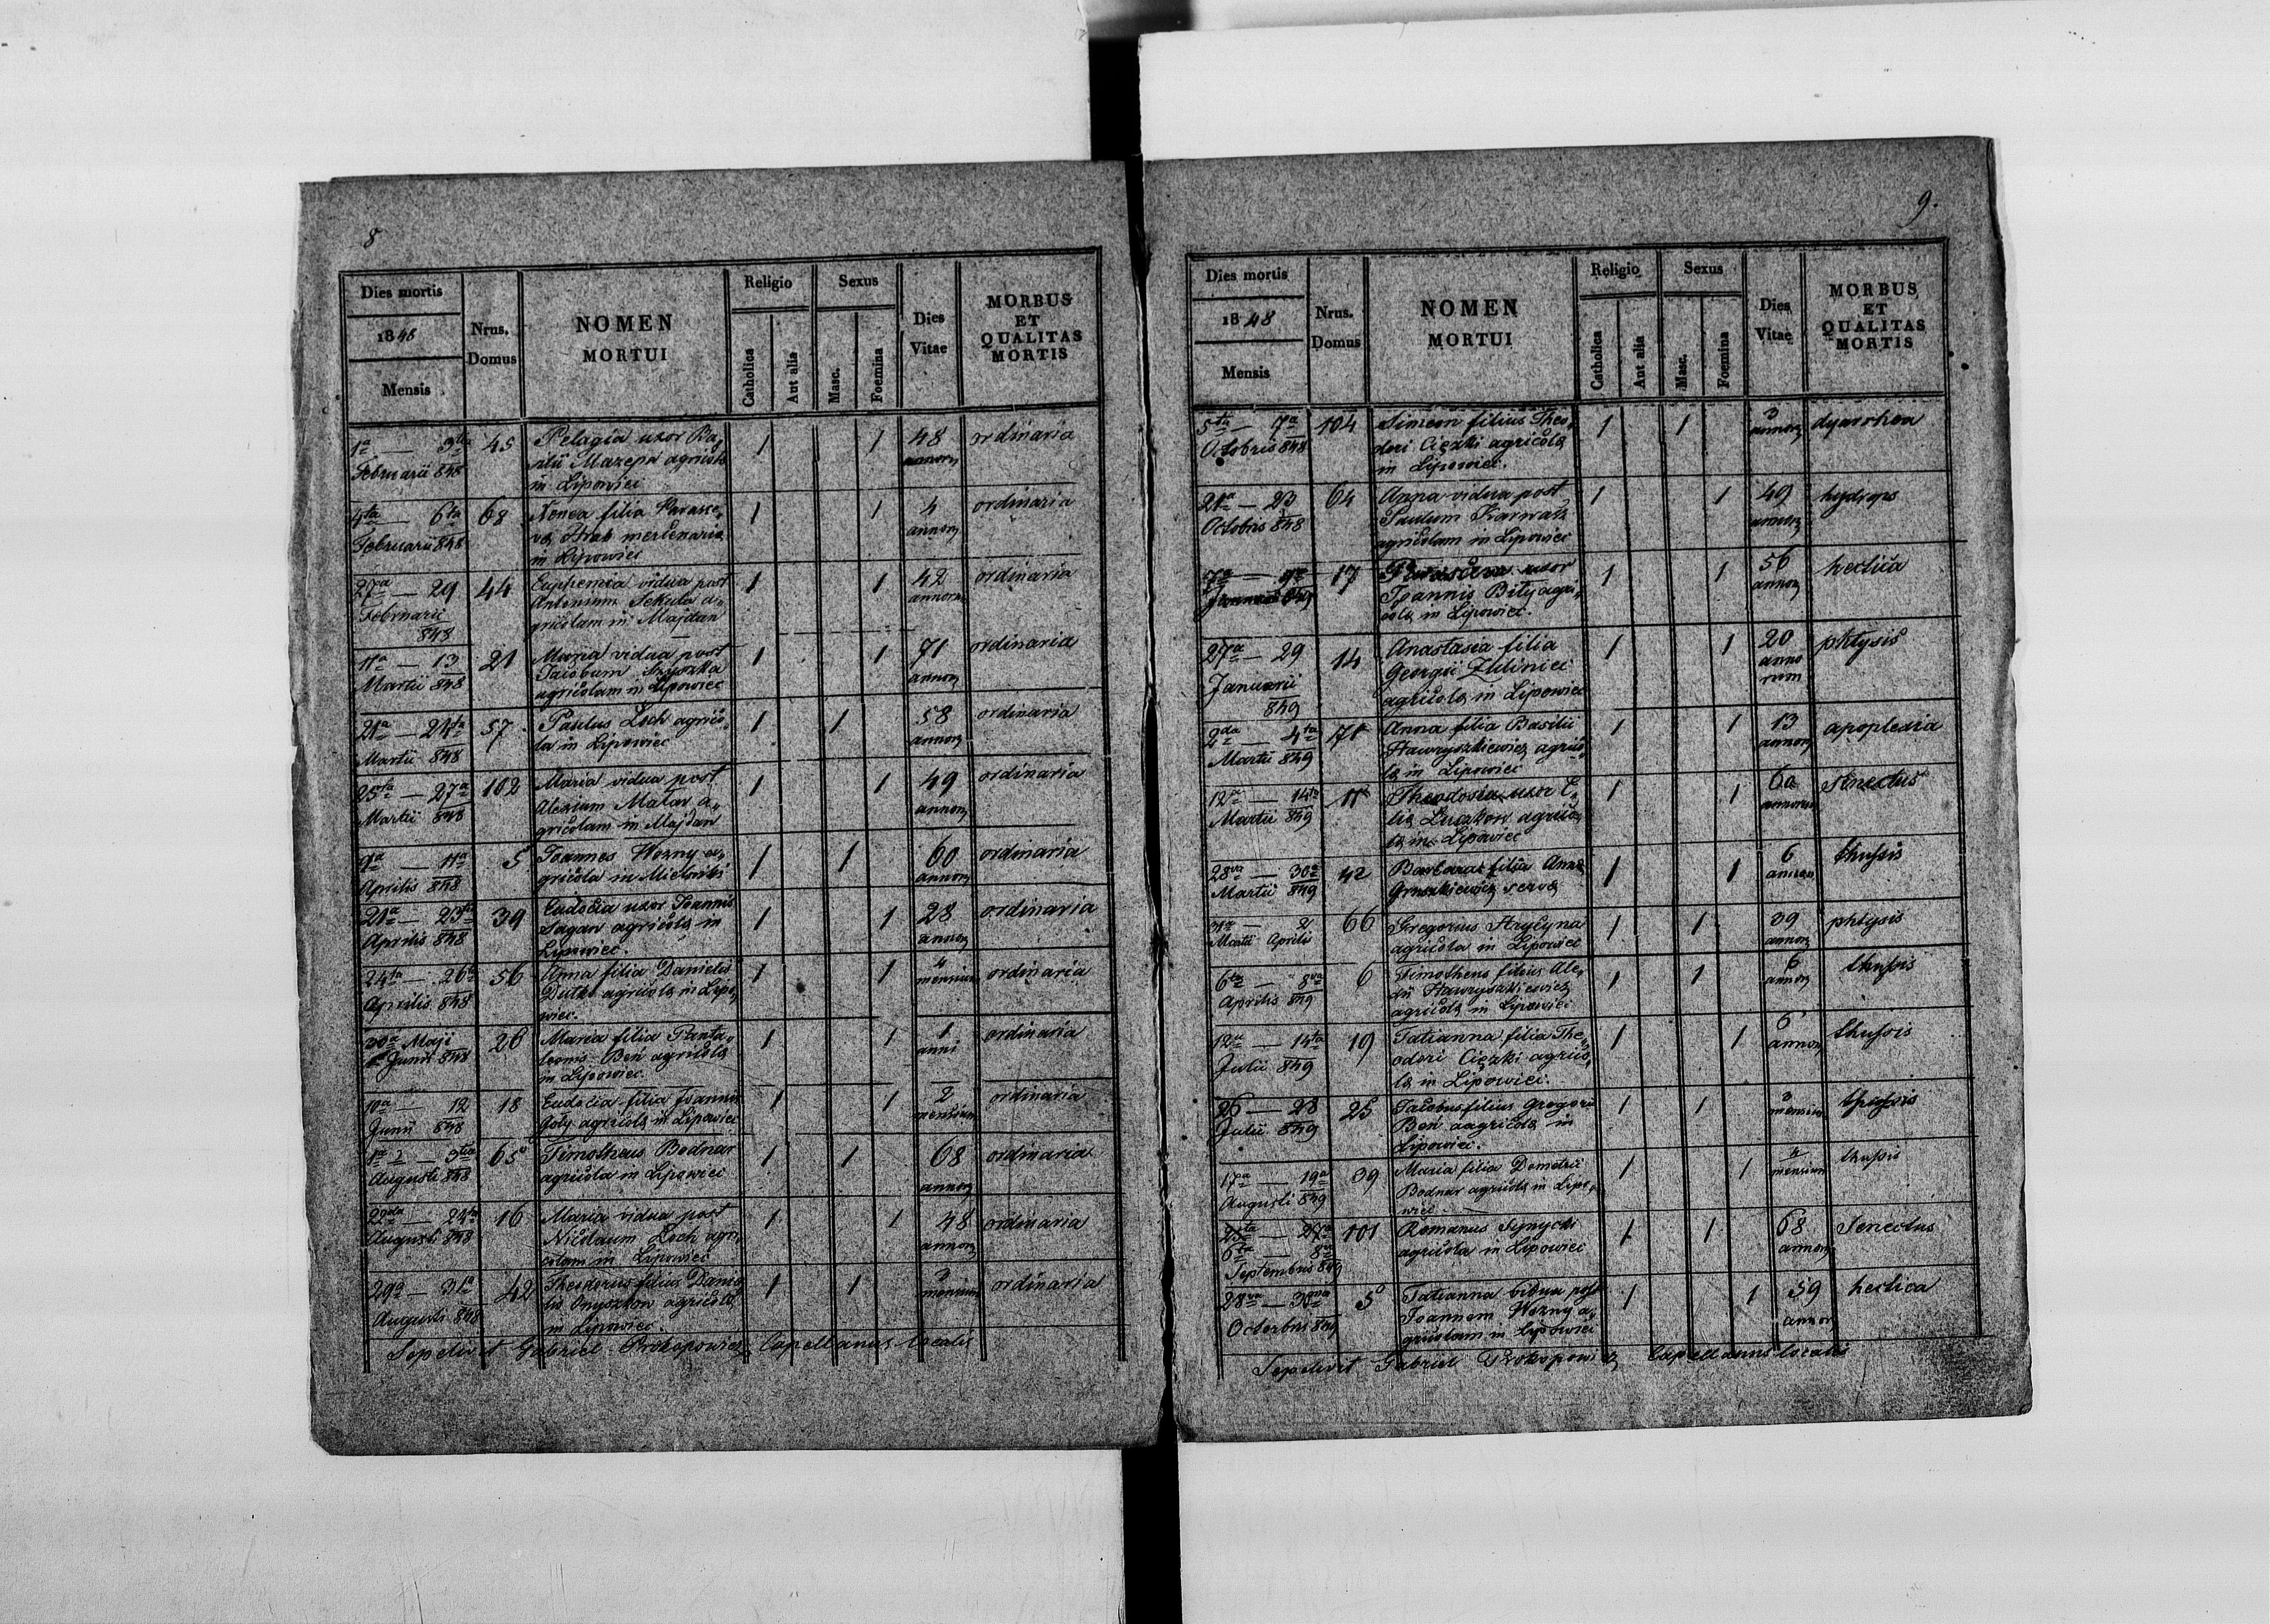 8
Dies mortis
1848
Mensis
Nrus. Domus
NOMEN MORTUI
Religio
Catholica
Aut alia
Sexus
Masc.
Foemina
Dies Vitae
MORBUS ET QUALITAS MORTIS
1a — 3tia 45 Pelagia uxor Ba- 1 1 48 ordinaria
Februarii 848 silii Mazepa agricolæ annorum
in Lipowiec
4ta — 6ta 68 filia Parasce- 1 1 4 ordinaria
Februarii 848 væ Hrab mercenariæ annorum
in Lipowiec
27a — 29 44 Euphemia vidua post 1 1 42 ordinaria
Februarii Antonium Sekula a- annorum
848 gricolam in Majdan
11a — 13 21 Maria vidua post 1 1 71 ordinaria
Martii 848 Jacobum annorum
agricolam in Lipowiec
21a — 24ta 57 Paulus Loch agrico- 1 1 58 ordinaria
Martii 848 la in Lipowiec annorum
25ta — 27a 102 Maria vidua post 1 1 49 ordinaria
Martii 848 Alexium Matar a- annorum
gricolam in Majdan
9a — 11a 5 Joannes Wozny a- 1 1 60 ordinaria
Aprilis 848 gricola in annorum
21a — 23tia 39 Eudocia uxor Joannis 1 1 28 ordinaria
Aprilis 848 Sagan agricolæ in annorum
Lipowiec
24ta — 26ta 56 Anna filia Danielis 1 1 4 ordinaria
Aprilis 848 Dutko agricolæ in Lipo- mensium
wiec.
30a Maji 26 Maria filia Panta- 1 1 1 ordinaria
Junii 848 leonis Beń agricolæ anni
in Lipowiec.
10a — 12 18 Eudocia filia Joannis 1 1 2 ordinaria
Junii 848 agricolæ in Lipowiec mensium
1a — 3tia 65 Timotheus Bodnar 1 1 68 ordinaria
Augusti 848 agricola in Lipowiec annorum
22da — 24ta 16 Maria vidua post 1 1 48 ordinaria
Augusti 848 Nicolaum Loch agri- annorum
colam in Lipowiec
29a — 31a 42 Theodorus filius Danie- 1 1 3 ordinaria
Augusti 848 lis Onyszkow agricolæ mensium
in Lipowiec.
Sepelivit Gabriel Prokopowicz Capellanus localis
9.
Dies mortis
1848
Mensis
Nrus. Domus
NOMEN MORTUI
Religio
Catholica
Aut alia
Sexus
Masc.
Foemina
Dies Vitae
MORBUS ET QUALITAS MORTIS
5ta — 7a 104 Simeon filius Theo- 1 1 3 dyarrhea
Octobris 848 dori Ciężki agricolæ annorum
in Lipowiec.
21a — 23 64 Anna vidua post 1 1 49 hydrops
Octobris 848 Paulum annorum
agricolam in Lipowiec
7a — 9a 17 uxor 1 1 56 hectica
Januarii 849 Joannis Bily agri- annorum
colæ in Lipowiec.
27a — 29 14 Anastasia filia 1 1 20 phtysis
Januarii Georgii anno
849 agricolæ in Lipowiec rum
2da — 4ta 71 Anna filia Basilii 1 1 13 apoplexia
Martii 849 Hawryszkiewicz agrico- annorum
læ in Lipowiec
12a — 14ta 11 Theodosia uxor E- 1 1 60 senectus
Martii 849 liæ agrico- annorum
læ in Lipowiec
28va — 30a 42 Barbara filia Annæ 1 1 6 thusois
Martii 849 Gruszkiewicz servæ annorum
31a — 2 66 Gregorius Hrycyna 1 1 39 phtysis
Martii Aprilis agricola in Lipowiec annorum
6ta — 8va 6 Timotheus filius Ale- 1 1 6 thusois
Aprilis 849 xii Hawryszkiewicz annorum
agricolæ in Lipowiec
12a — 14ta 19 Tatianna filia The- 1 1 6 thusois
Julii 849 odori Ciężki agrico- annorum
læ in Lipowiec.
26 — 28 25 Jacobus filius Gregorii 1 1 3
Julii 849 Beń agricolæ in mensium
Lipowiec.
17a — 19a 39 Maria filia Demetrii 1 1 mensium thusois
Augusti 849 Bodnar agricolæ in Lipo-
wiec
25ta — 27a 101 Romanus Synycki 1 1 68 Senectus
6ta — 8a agricola in Lipowiec annorum
Septembris 849
28va — 30 5 Tatianna vidua post 1 1 59 hectica
Octobris 849 Joannem Wozny a- annorum
gricolam in Lipowiec
Sepelivit Gabriel Prokopowicz Capellanus localis